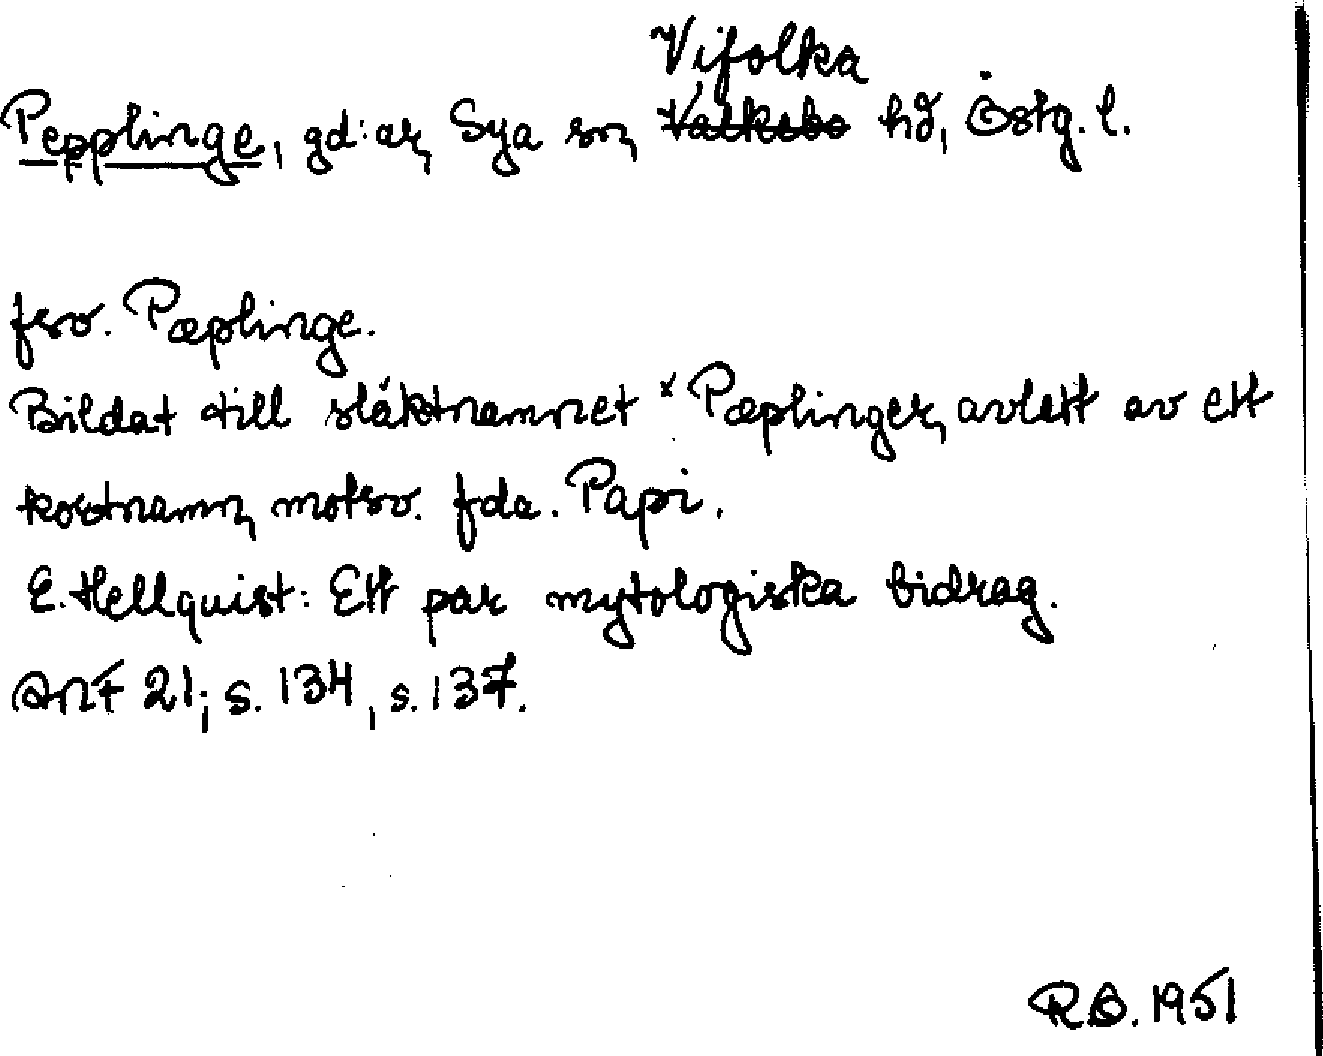 Vifolka
Pepplinge, gd:ar, Sya sn, Valkebo hd, Östg. l.
fsv. Pæplinge.
Bildat till släktnamnet *Pæplingar, avlett av ett
kortnamn, motsv. fda. Papi.
E. Hellquist: Ett par mytologiska bidrag.
ANF 21; s. 134, s. 137.
R.Ö. 1951